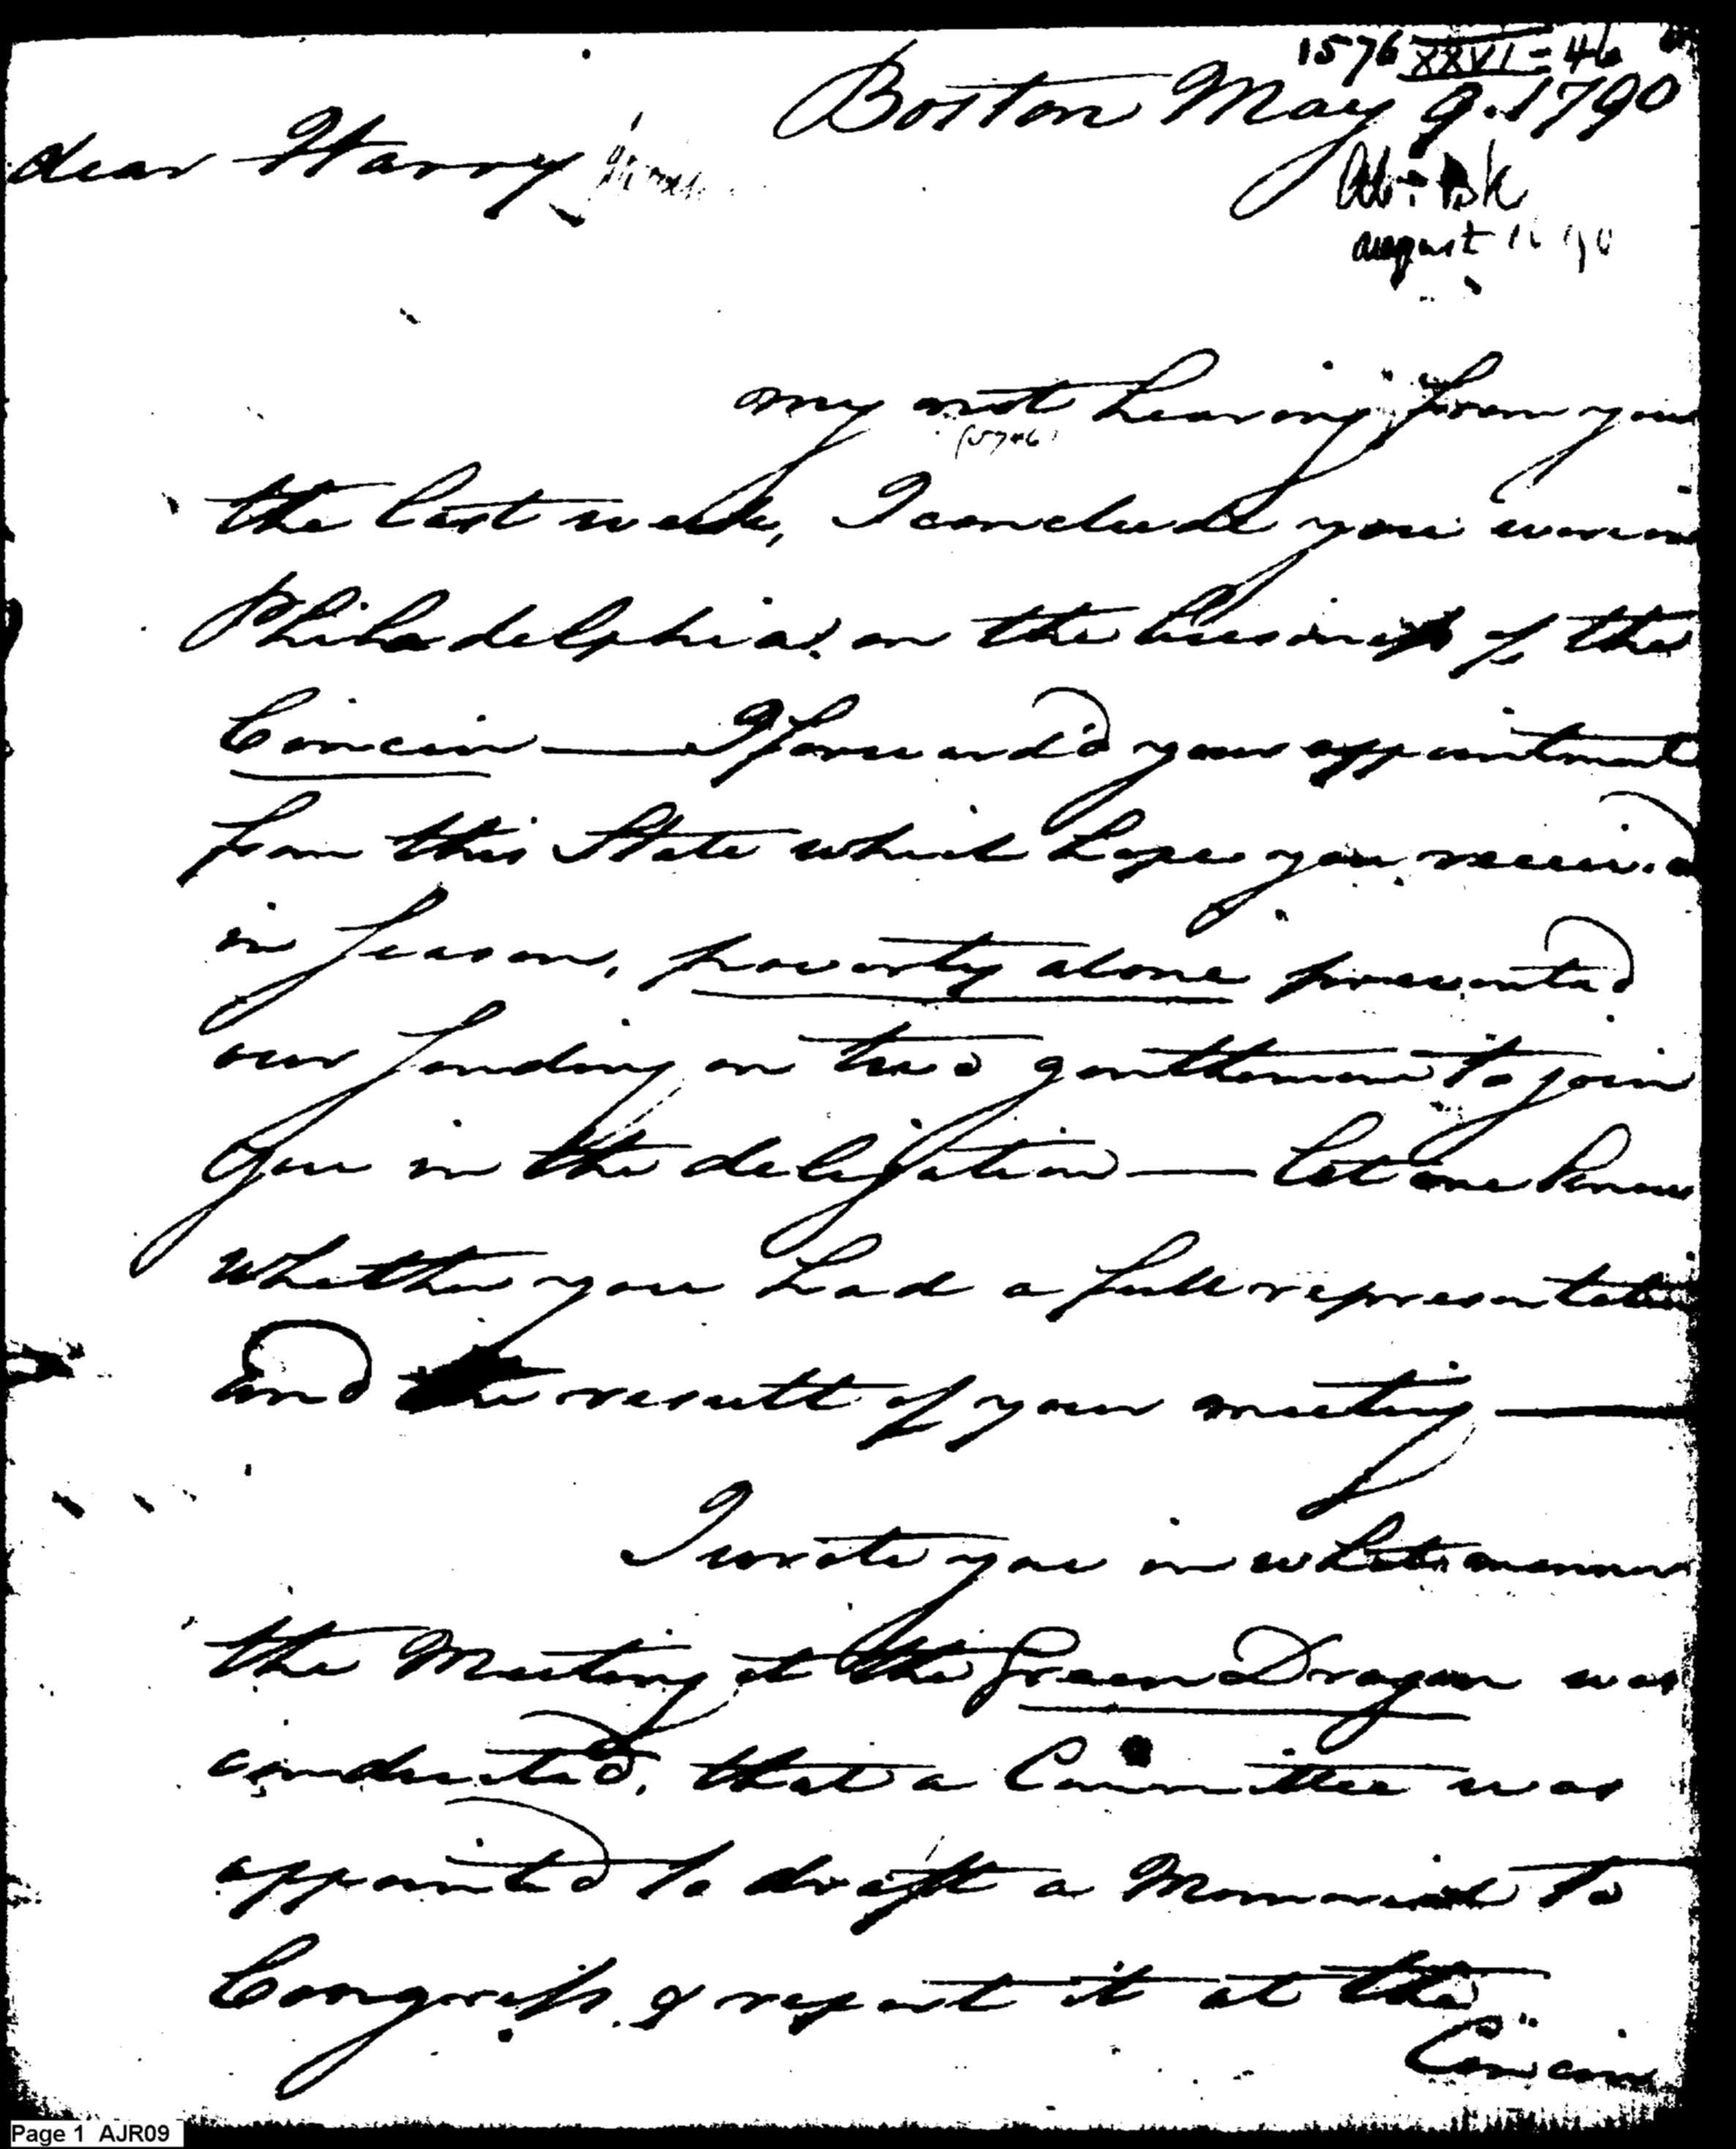 1576 XXVI=46
Boston May 9. 1790
dear Harry
august 16 90
my not hearing from you
(5746)
the last week, I conclude you was in
Philadelphia, on the business of the
Cincin — I forward'd your appointment
from this State which hope you receiv'd
in season, poverty alone prevented
our sending on two gentlemen to join
you in the deligation — let me know
whether you had a full representation
and the result of your meeting —
I wrote you in what manner
the Meeting at the Green Dragon was
conducted, that a Committee was
appointed to draft a Memorial to
Congress & report it at the
Cincin
Page 1 AJR09